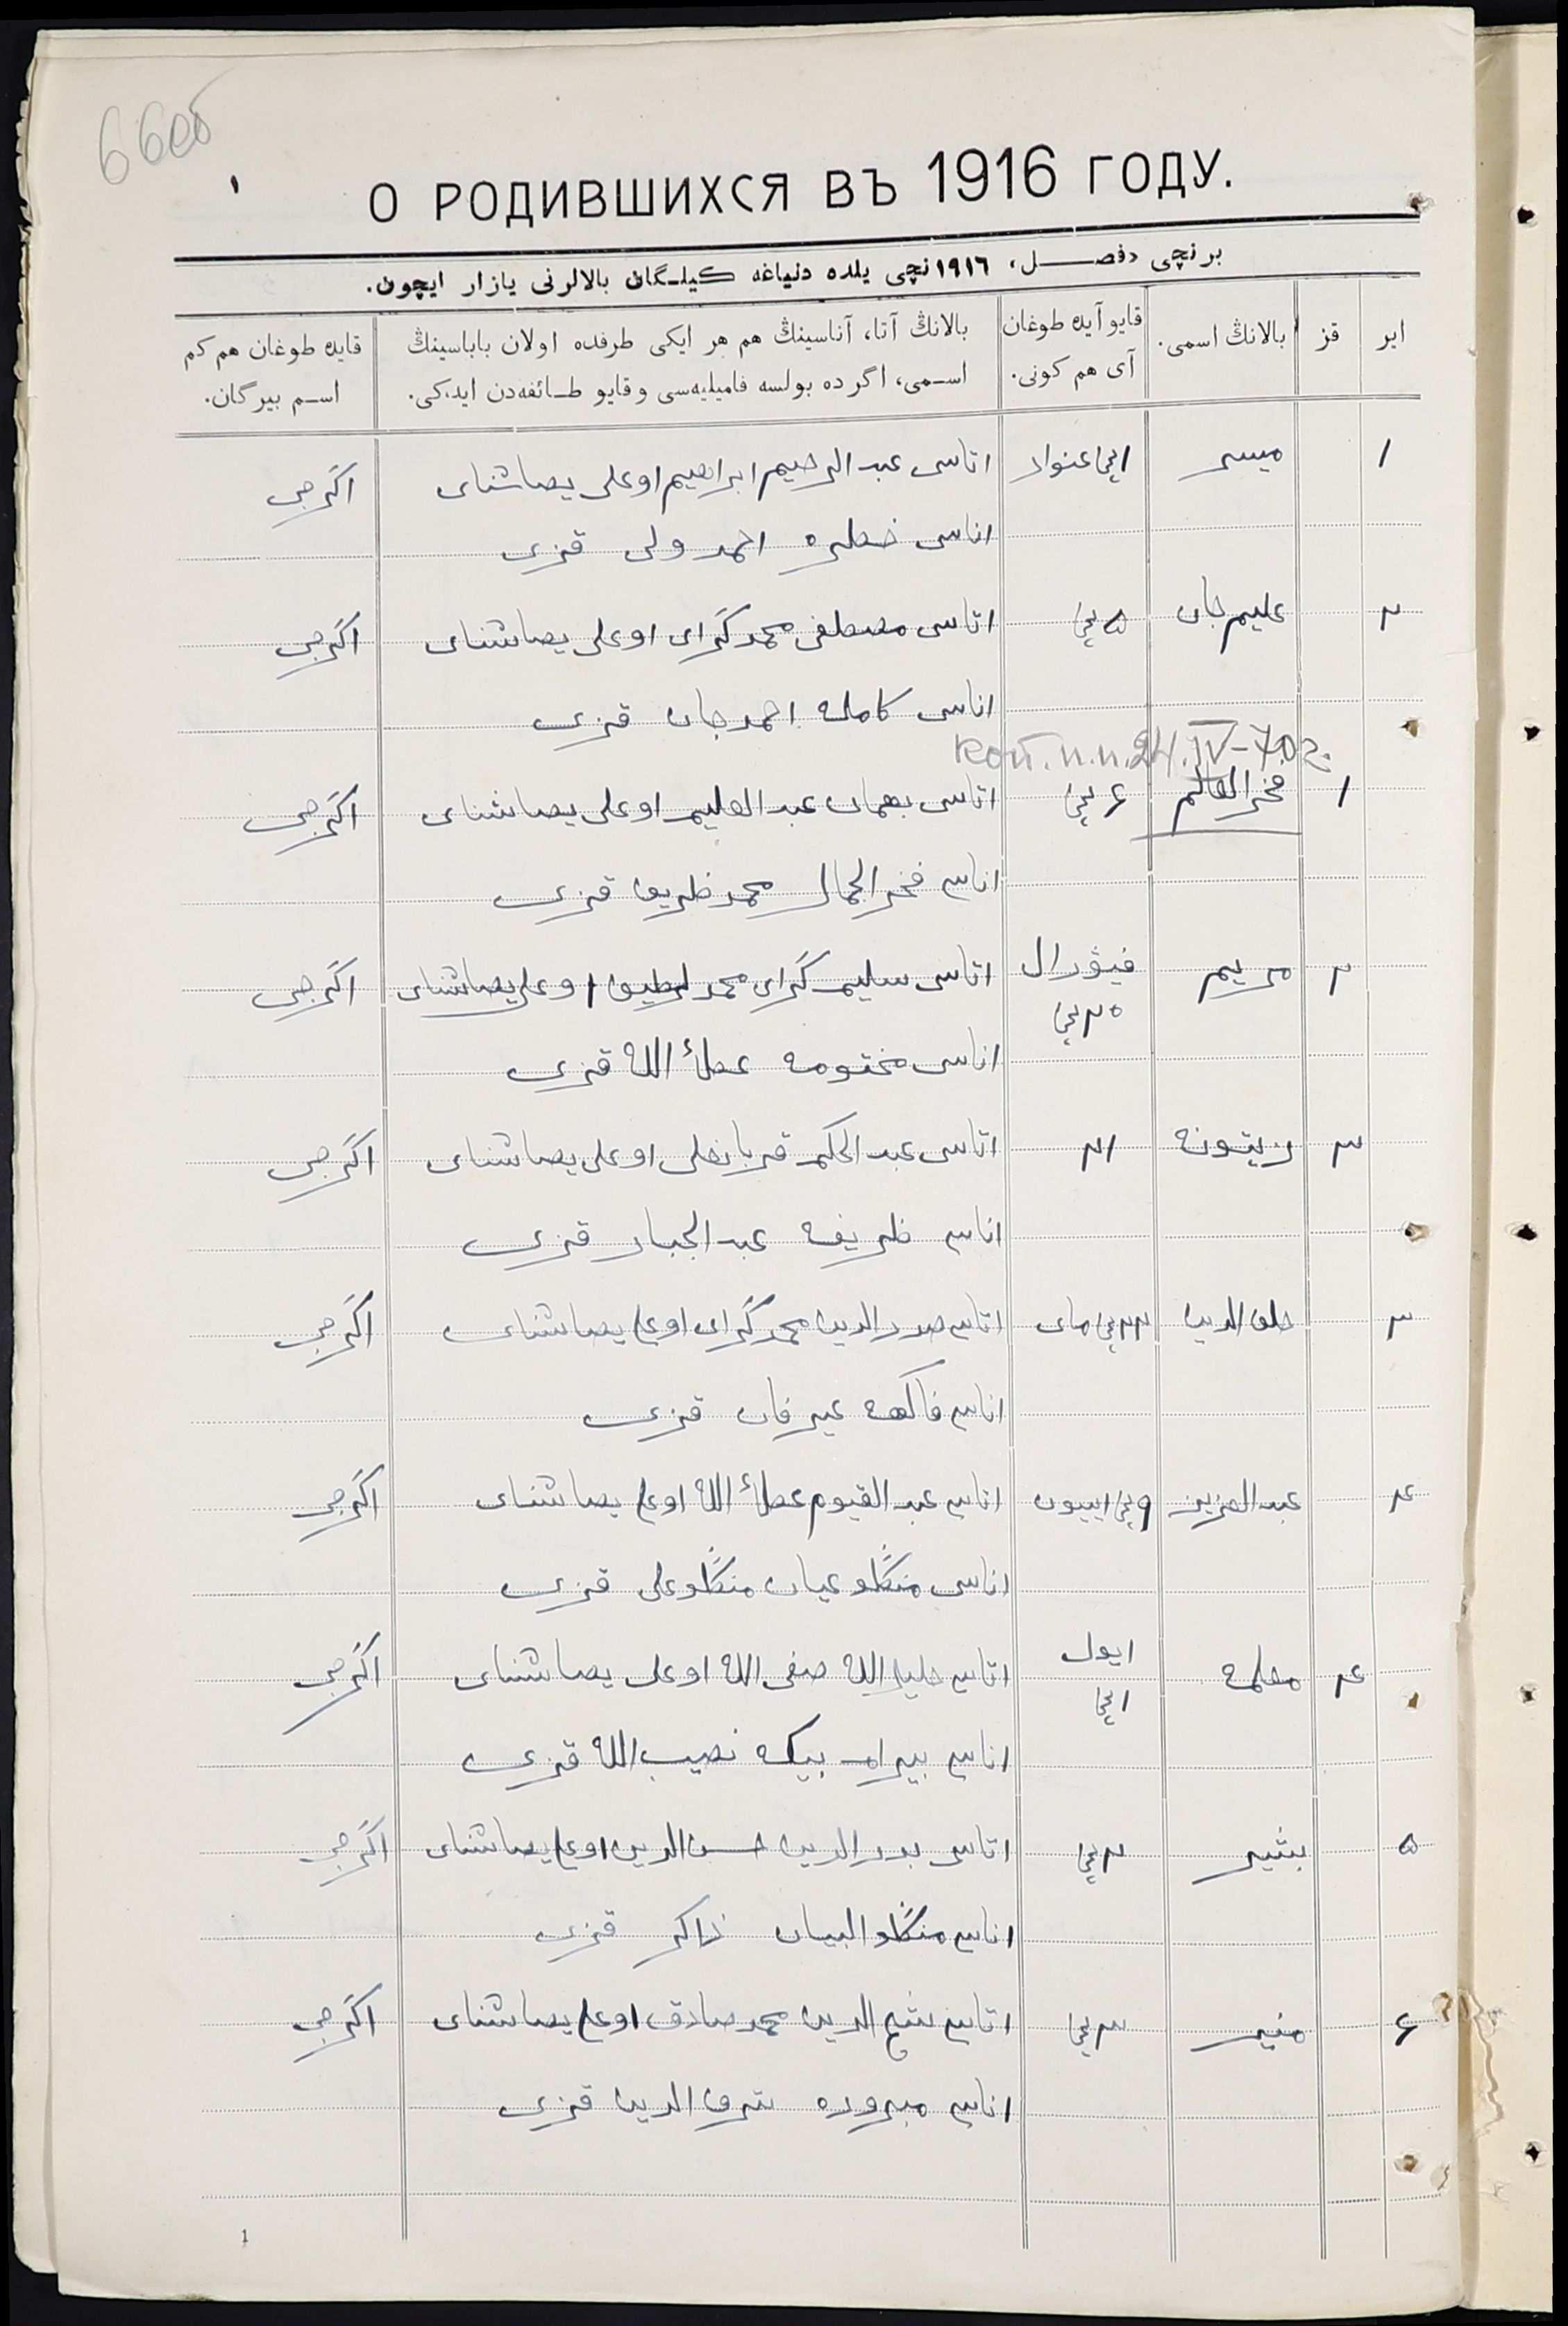 66об
О РОДИВШИХСЯ ВЪ 1916 ГОДУ.
برنچی فصل، ١٩١٦ نچی یلده دنیاغه کیلگان بالالرنی یازار ایچون.
ایر
قز
بالانڭ اسمی.
قایو آیده طوغان
آی هم کونی.
بالانڭ آتا، آناسینڭ هم هر ایکی طرفده اولان باباسینڭ
اسمی، اگرده بولسه فامیلیه‌سی و قایو طائفه‌دن ایدکی.
قایده طوغان هم کم
اسم بیرگان.
١ میسر ١نچی غنوار اتاسی عبد الرحیم ابراهیم اوغلی یصاشنای اکرجی
اناسی احمد ولی قزی
٢ علیم جان ٥نچی اتاسی مصطفی محمد کرای اوغلی یصاشنای اکرجی
اناسی کامله احمد جان قزی
Коп. п.п. 24.IV-70г.
١ فخر العالم ۶نچی اتاسی عبد العلیم اوغلی یصاشنای اکرجی
اناسی فخر الجمال محمد ظریف قزی
٢ مریم فیۋرال اتاسی سلیم کرای محمد لطیف اوغلی یصاشنای اکرجی
٢٥نچی
اناسی مختومه عطاء الله قزی
٣ زیتونه ٢١ اتاسی عبد الحکیم قربانعلی اوغلی یصاشنای اکرجی
اناسی ظریفه عبد الجبار قزی
٣ ٢٣نچی مای اتاسی صدر الدین محمد کرای اوغلی یصاشنای اکرجی
اناسی فاکهه قزی
۴ عبد العزیز ٩نچی اییون اتاسی عبد القیوم عطاء الله اوغلی یصاشنای اکرجی
اناسی منکلو عیان منکلو علی قزی
۴ معلمه ایول اتاسی خلیل الله صفی الله اوغلی یصاشنای اکرجی
١نچی
اناسی بیرام بیکه نصیب الله قزی
٥ بشیر ٢نچی اتاسی بدر الدین حسن الدین اوغلی یصاشنای اکرجی
اناسی منکلو البیان ذاکر قزی
۶ منیر ٣نچی اتاسی الدین محمد صادق اوغلی یصاشنای اکرجی
اناسی مبروره شرف الدین قزی
1